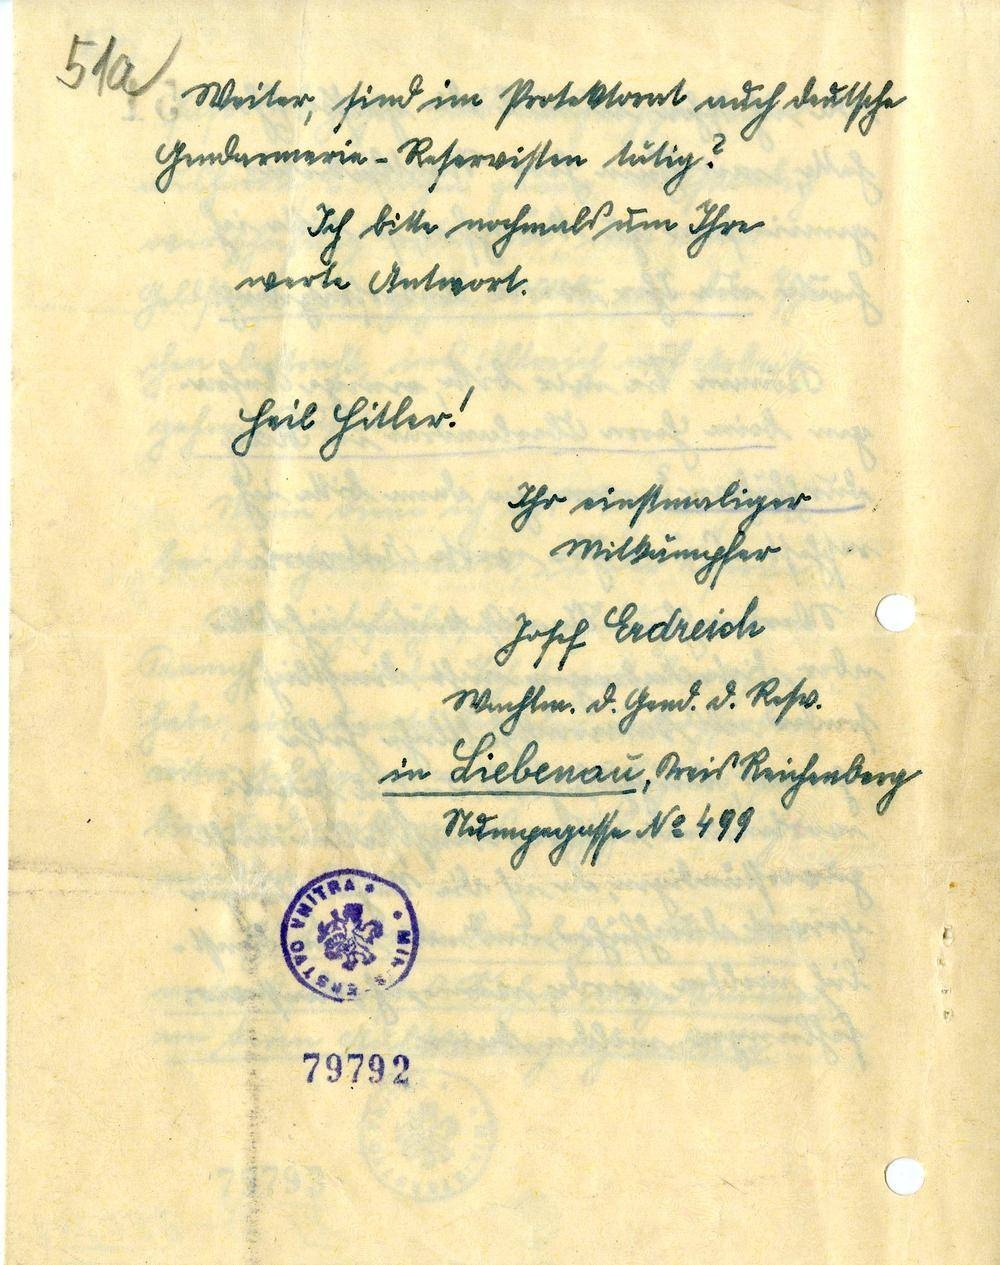 51a
Weiter, sind im Protektorat auch deutsche
Gendarmerie-Reservisten tätig?
Ich bitte nochmals um Ihre
werte Antwort.
Heil Hitler!
Ihr einstmaliger
Mitkämpfer
Josef Erdreich
Wachtm. d. Gend. d. Resv.
in Liebenau, Kreis Reichenberg
No 499
MINISTERSTVO VNITRA
79792